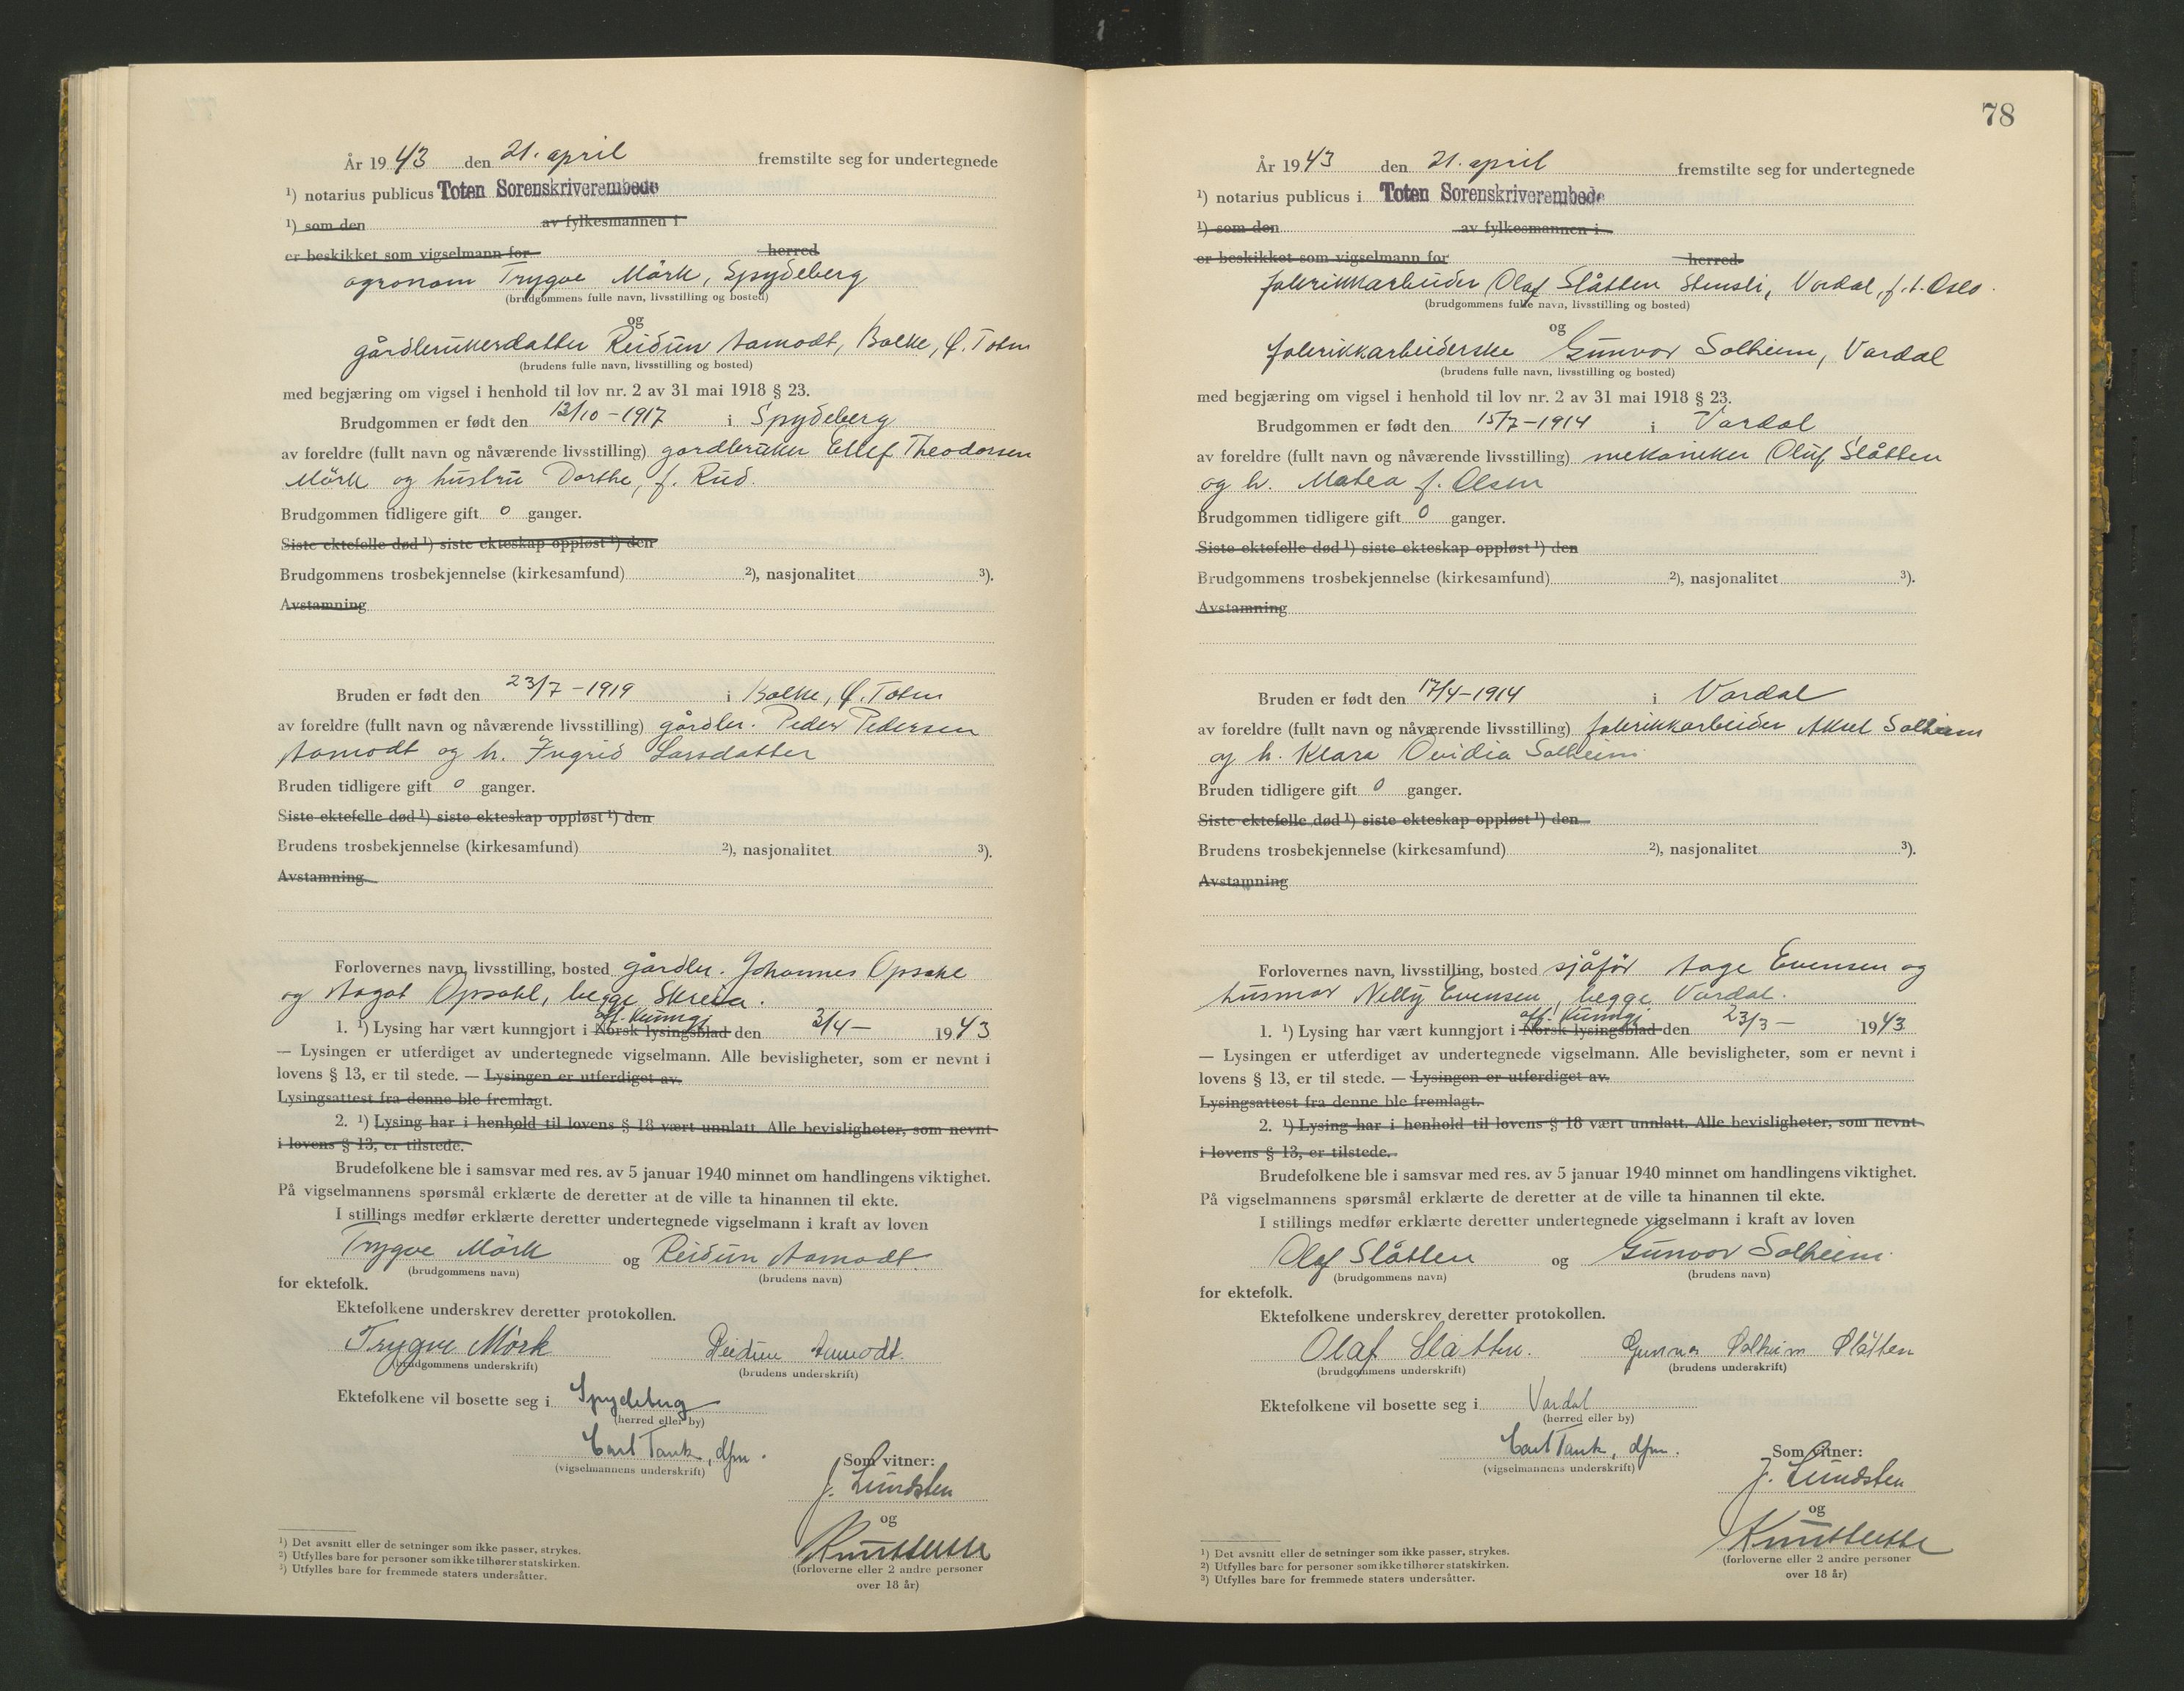 År 1943 den 21. april fremstilte seg for undertegnede
¹) notarius publicus Toten Sorenskriverembede
¹) som den av fylkesmannen i
er beskikket som vigselmann for herred
agronom Trygve Mörk, Spydeberg
(brudgommens fulle navn, livsstilling og bosted)
og
gårdbrukerdatter Reidun Aamodt, Balke, Ø. Toten
(brudens fulle navn, livsstilling og bosted)
med begjæring om vigsel i henhold til lov nr. 2 av 31 mai 1918 § 23.
Brudgommen er født den 13/10-1917 i Spydeberg
av foreldre (fullt navn og nåværende livsstilling) gardbruker Ellef Theodorsen
Mörk og hustru Dorthe, f. Rud.
Brudgommen tidligere gift 0 ganger.
Siste ektefelle død ¹) siste ekteskap oppløst ¹) den
Brudgommens trosbekjennelse (kirkesamfund) ²), nasjonalitet ³).
Avstamning
Bruden er født den 23/7-1919 i Balke, Ø. Toten
av foreldre (fullt navn og nåværende livsstilling) gårdbr. Peder Pedersen
Aamodt og h. Ingrid Larsdatter
Bruden tidligere gift 0 ganger.
Siste ektefelle død ¹) siste ekteskap oppløst ¹) den
Brudens trosbekjennelse (kirkesamfund) ²), nasjonalitet ³).
Avstamning
Forlovernes navn, livsstilling, bosted gårdbr. Johannes Opsahl
og Aagot Opsahl, begge Skreia.
off. kunngj.
1. ¹) Lysing har vært kunngjort i Norsk lysingsblad den 3/4- 1943
— Lysingen er utferdiget av undertegnede vigselmann. Alle bevisligheter, som er nevnt i
lovens § 13, er til stede. — Lysingen er utferdiget av.
Lysingsattest fra denne ble fremlagt.
2. ¹) Lysing har i henhold til lovens § 18 vært unnlatt. Alle bevisligheter, som nevnt
i lovens § 13, er tilstede.
Brudefolkene ble i samsvar med res. av 5 januar 1940 minnet om handlingens viktighet.
På vigselmannens spørsmål erklærte de deretter at de ville ta hinannen til ekte.
I stillings medfør erklærte deretter undertegnede vigselmann i kraft av loven
Trygve Mörk og Reidun Aamodt.
(brudgommens navn) (brudens navn)
for ektefolk.
Ektefolkene underskrev deretter protokollen.
Trygve Mörk Reidun Aamodt.
(brudgommens underskrift) (brudens underskrift)
Ektefolkene vil bosette seg i Spydeberg
(herred eller by)
Carl Tank, dfm.
(vigselmannens underskrift)
Som vitner:
J. Lundsten
og
(forloverne eller 2 andre personer
over 18 år)
¹) Det avsnitt eller de setninger som ikke passer, strykes.
²) Utfylles bare for personer som ikke tilhører statskirken.
³) Utfylles bare for fremmede staters undersåtter.
78
År 1943 den 21. april fremstilte seg for undertegnede
¹) notarius publicus i Toten Sorenskriverembede
¹) som den av fylkesmannen i
er beskikket som vigselmann for herred
fabrikkarbeider Olaf Slåtten Stensli, Vardal, f.t. Oslo.
(brudgommens fulle navn, livsstilling og bosted)
og
fabrikkarbeiderske Gunvor Solheim, Vardal
(brudens fulle navn, livsstilling og bosted)
med begjæring om vigsel i henhold til lov nr. 2 av 31 mai 1918 § 23.
Brudgommen er født den 15/7-1914 i Vardal
av foreldre (fullt navn og nåværende livsstilling) mekaniker Oluf Slåtten
og h. Matea f. Olsen
Brudgommen tidligere gift 0 ganger.
Siste ektefelle død ¹) siste ekteskap oppløst ¹) den
Brudgommens trosbekjennelse (kirkesamfund) ²), nasjonalitet ³).
Avstamning
Bruden er født den 17/4-1914 i Vardal
av foreldre (fullt navn og nåværende livsstilling) fabrikkarbeider Aksel Solheim
og h. Klara Ovidia Solheim
Bruden tidligere gift 0 ganger.
Siste ektefelle død ¹) siste ekteskap oppløst ¹) den
Brudens trosbekjennelse (kirkesamfund) ²), nasjonalitet ³).
Avstamning
Forlovernes navn, livsstilling, bosted sjåför Aage Evensen og
husmor Nelly Evensen, begge Vardal.
off. kunngj.
1. ¹) Lysing har vært kunngjort i Norsk lysingsblad den 23/3- 1943
— Lysingen er utferdiget av undertegnede vigselmann. Alle bevisligheter, som er nevnt i
lovens § 13, er til stede. — Lysingen er utferdiget av.
Lysingsattest fra denne ble fremlagt.
2. ¹) Lysing har i henhold til lovens § 18 vært unnlatt. Alle bevisligheter, som nevnt
i lovens § 13, er tilstede.
Brudefolkene ble i samsvar med res. av 5 januar 1940 minnet om handlingens viktighet.
På vigselmannens spørsmål erklærte de deretter at de ville ta hinannen til ekte.
I stillings medfør erklærte deretter undertegnede vigselmann i kraft av loven
Olaf Slåtten og Gunvor Solheim.
(brudgommens navn) (brudens navn)
for ektefolk.
Ektefolkene underskrev deretter protokollen.
Olaf Slåtten. Gunvor Solheim Slåtten
(brudgommens underskrift) (brudens underskrift)
Ektefolkene vil bosette seg i Vardal
(herred eller by)
Carl Tank, dfm.
(vigselmannens underskrift)
Som vitner:
J. Lundsten
og
(forloverne eller 2 andre personer
over 18 år)
¹) Det avsnitt eller de setninger som ikke passer, strykes.
²) Utfylles bare for personer som ikke tilhører statskirken.
³) Utfylles bare for fremmede staters undersåtter.